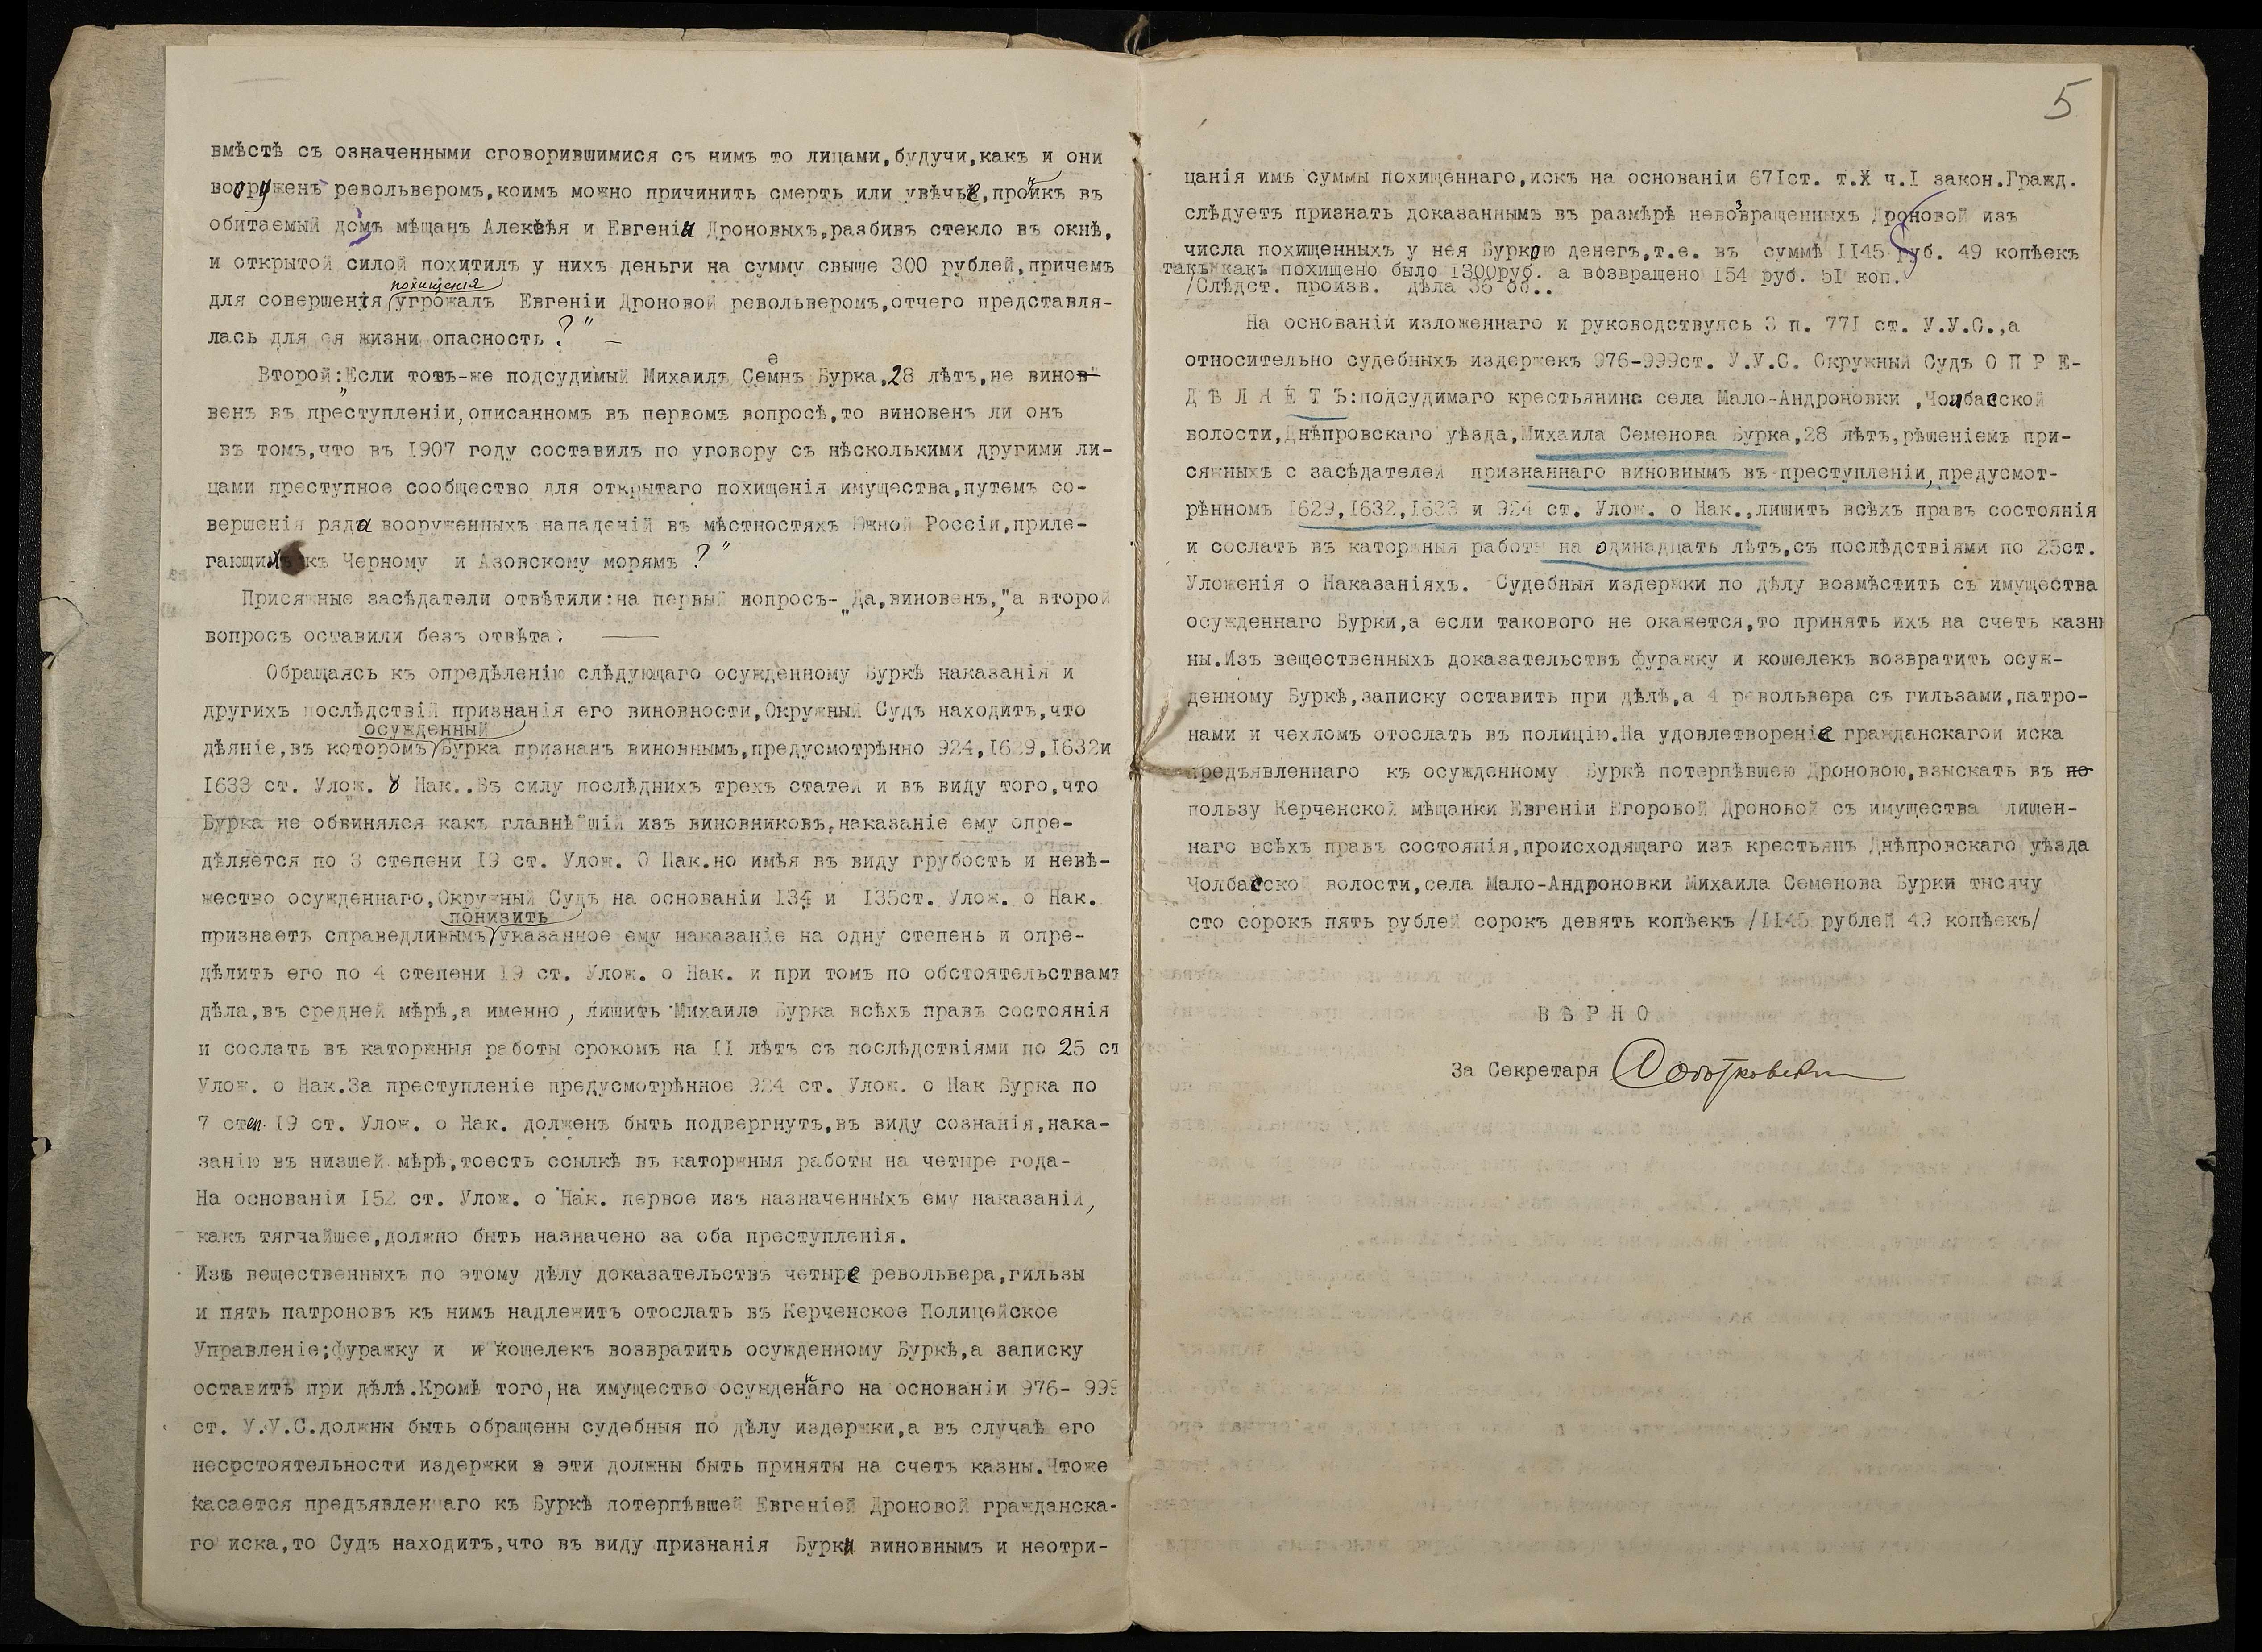 вмѣстѣ съ означенными сговорившимися съ нимъ то лицами,будучи,какъ и они
вооруженъ револьверомъ,коимъ можно причинить смерть или увѣчье,проникъ въ
обитаемый домъ мѣщанъ Алексѣя и Евгеніи Дроновыхъ,разбивъ стекло въ окнѣ,
и открытой силой похитилъ у нихъ деньги на сумму свыше 300 рублей,причемъ
похищенія
для совершенія угрожалъ Евгеніи Дроновой револьверомъ,отчего представля-
лась для ея жизни опасность ?" —
Второй:"Если тотъ-же подсудимый Михаилъ Семенъ Бурка,28 лѣтъ,не винов-
венъ въ преступленіи,описанномъ въ первомъ вопросѣ,то виновенъ ли онъ
въ томъ,что въ 1907 году составилъ по уговору съ нѣсколькими другими ли-
цами преступное сообщество для открытаго похищенія имущества,путемъ со-
вершенія ряда вооруженныхъ нападеній въ мѣстностяхъ Южной Россіи,приле-
гающихъ къ Черному и Азовскому морямъ ?"
Присяжные засѣдатели отвѣтили:на первый вопросъ-"Да,виновенъ,"а второй
вопросъ оставили безъ отвѣта. —
Обращаясь къ опредѣленію слѣдующаго осужденному Буркѣ наказанія и
другихъ послѣдствій признанія его виновности,Окружный Судъ находитъ,что
осужденный
дѣяніе,въ которомъ Бурка признанъ виновнымъ,предусмотрѣнно 924,1629,1632и
1633 ст. Улож. о Нак..Въ силу послѣднихъ трехъ статей и въ виду того,что
Бурка не обвинялся какъ главнѣйшій изъ виновниковъ,наказаніе ему опре-
дѣляется по 3 степени 19 ст. Улож. О Нак.но имѣя въ виду грубость и невѣ-
жество осужденнаго,Окружный Судъ на основаніи 134 и 135ст. Улож. о Нак.
понизить
признаетъ справедливымъ указанное ему наказаніе на одну степень и опре-
дѣлить его по 4 степени 19 ст. Улож. о Нак. и при томъ по обстоятельствамъ
дѣла,въ средней мѣрѣ,а именно, лишить Михаила Бурка всѣхъ правъ состоянія
и сослать въ каторжныя работы срокомъ на II лѣтъ съ послѣдствіями по 25 ст
Улож. о Нак.За преступленіе предусмотрѣнное 924 ст. Улож. о Нак Бурка по
7 степ. 19 ст. Улож. о Нак. долженъ быть подвергнутъ,въ виду сознанія,нака-
занію въ низшей мѣрѣ,тоесть ссылкѣ въ каторжныя работы на четыре года-
На основаніи 152 ст. Улож. о Нак. первое изъ назначенныхъ ему наказаній,
какъ тягчайшее,должно быть назначено за оба преступленія.
Изъ вещественныхъ по этому дѣлу доказательствъ четыре револьвера,гильзы
и пять патроновъ къ нимъ надлежитъ отослать въ Керченское Полицейское
Управленіе;фуражку и и кошелекъ возвратить осужденному Буркѣ,а записку
оставить при дѣлѣ.Кромѣ того,на имущество осужденнаго на основаніи 976- 999
ст. У.У.С.должны быть обращены судебныя по дѣлу издержки,а въ случаѣ его
несостоятельности издержки эти должны быть приняты на счетъ казны.Чтоже
касается предъявленнаго къ Буркѣ потерпѣвшей Евгеніей Дроновой гражданска-
го иска,то Судъ находитъ,что въ виду признанія Бурки виновнымъ и неотри-
5
цанія имъ суммы похищеннаго,искъ на основаніи 671ст. т.X ч.I закон.Гражд.
слѣдуетъ признать доказаннымъ въ размѣрѣ невозвращенныхъ Дроновой изъ
числа похищенныхъ у нея Буркою денегъ,т.е. въ суммѣ II45 руб. 49 копѣекъ
такъ какъ похищено было 1300руб. а возвращено 154 руб. 51 коп.
/Слѣдст. произв. дѣла 36 об..
На основаніи изложеннаго и руководствуясь 3 п. 771 ст. У.У.С.,а
относительно судебныхъ издержекъ 976-999ст. У.У.С. Окружный Судъ О П Р Е-
Д Ѣ Л Я Е Т Ъ:подсудимаго крестьянина села Мало-Андроновки ,Чолбасской
волости,Днѣпровскаго уѣзда,Михаила Семенова Бурка,28 лѣтъ,рѣшеніемъ при-
сяжныхъ с засѣдателей признаннаго виновнымъ въ преступленіи,предусмот-
рѣнномъ 1629,1632,1633 и 924 ст. Улож. о Нак.,лишить всѣхъ правъ состоянія
и сослать въ каторжныя работы на одинадцать лѣтъ,съ послѣдствіями по 25ст.
Уложенія о Наказаніяхъ. Судебныя издержки по дѣлу возмѣстить съ имущества
осужденнаго Бурки,а если такового не окажется,то принять ихъ на счетъ казн
ны.Изъ вещественныхъ доказательствъ фуражку и кошелекъ возвратить осуж-
денному Буркѣ,записку оставить при дѣлѣ,а 4 револьвера съ гильзами,патро-
нами и чехломъ отослать въ полицію.На удовлетвореніе гражданскагои иска
предъявленнаго къ осужденному Буркѣ потерпѣвшею Дроновою,взыскать въ по
пользу Керченской мѣщанки Евгеніи Егоровой Дроновой съ имущества лишен-
наго всѣхъ правъ состоянія,происходящаго изъ крестьянъ Днѣпровскаго уѣзда
Чолбасской волости,села Мало-Андроновки Михаила Семенова Бурки тысячу
сто сорокъ пять рублей сорокъ девять копѣекъ /II45 рублей 49 копѣекъ/
В Ѣ Р Н О
За Секретаря